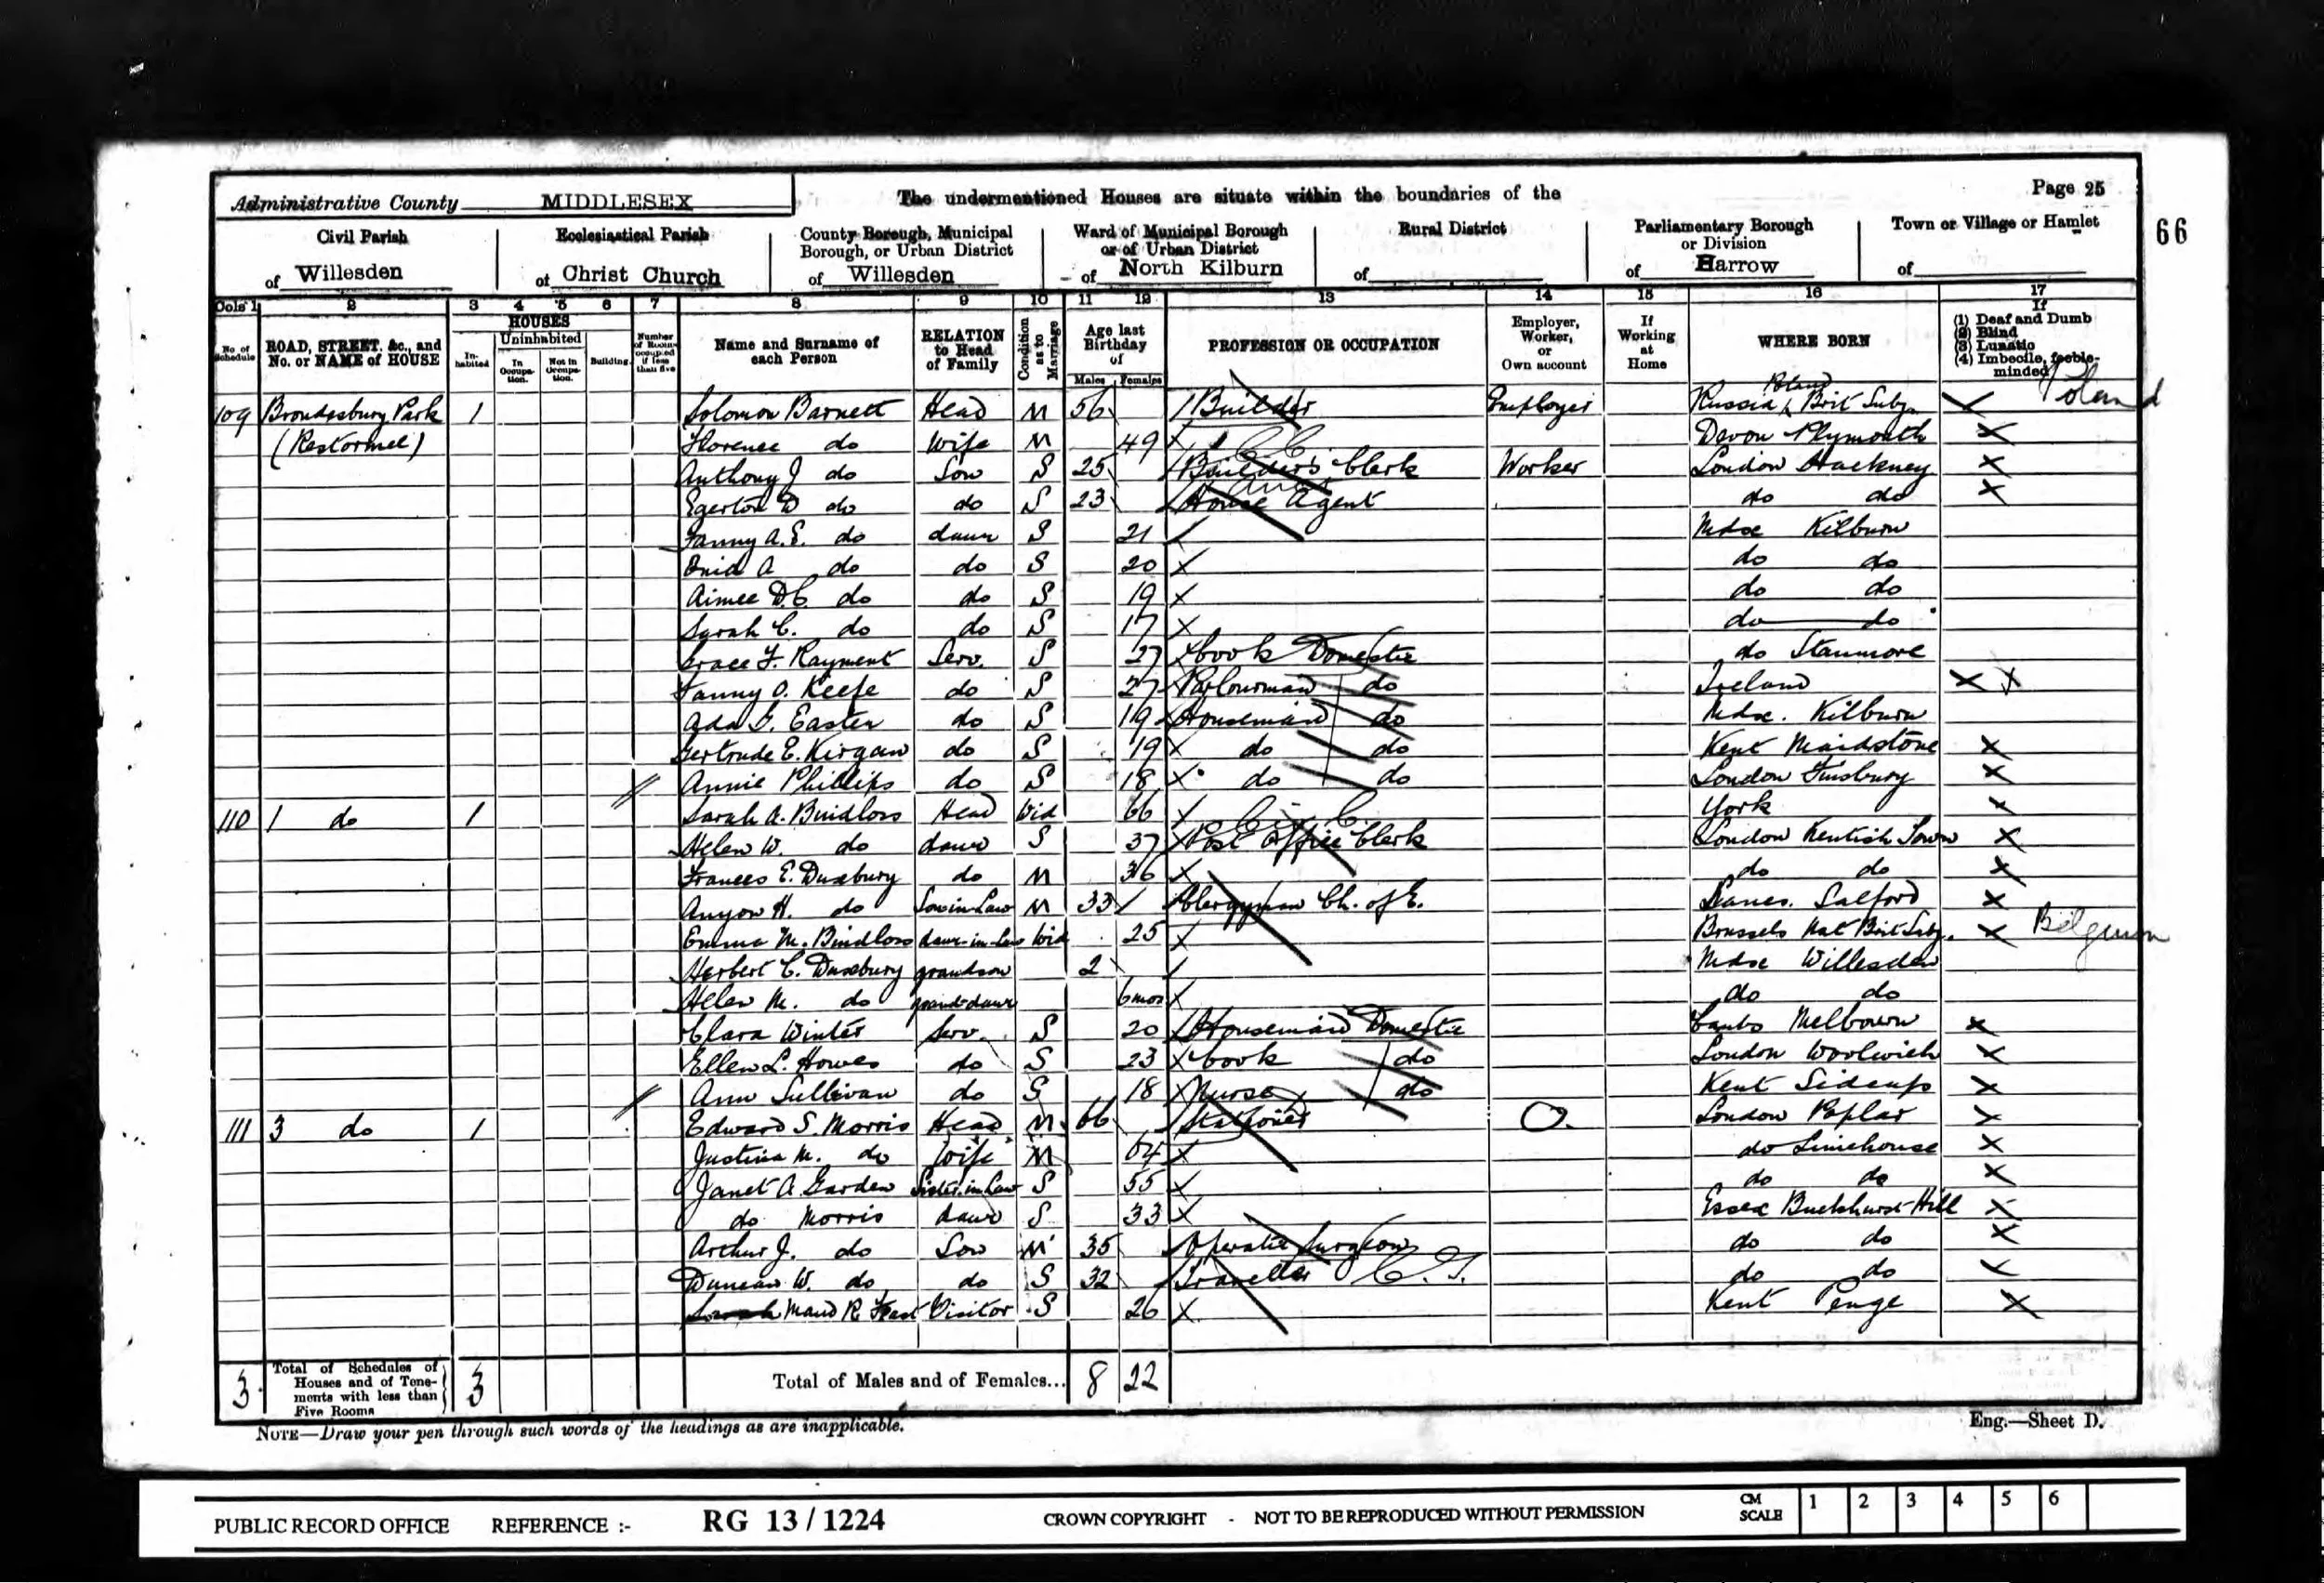 Administrative County MIDDLESEX The undermentioned Houses are situate within the boundaries of the Page 25
66
Civil Parish of Willesden
Ecclesiastical Parish of Christ Church
County Borough, Municipal Borough, or Urban District of Willesden
Ward of Municipal Borough or of Urban District of North Kilburn
Rural District of
Parliamentary Borough or Division of Harrow
Town or Village or Hamlet of
Cols 1 2 3 4 5 6 7 8 9 10 11 12 13 14 15 16 17
No. of Schedule
ROAD, STREET, &c., and No. or NAME of HOUSE
HOUSES
Inhabited
Uninhabited
In Occupation.
Not in Occupation.
Building
Number of Rooms occupied if less than five
Name and Surname of each Person
RELATION to Head of Family
Condition as to Marriage
Age last Birthday of
Males Females
PROFESSION OR OCCUPATION
Employer, Worker, or Own account
If Working at Home
WHERE BORN
If
(1) Deaf and Dumb
(2) Blind
(3) Lunatic
(4) Imbecile, feeble-minded
109 Brondesbury Park 1 Solomon Barnett Head M 56 Builder Employer Russia Poland Brit Subj. Poland
(Restormel) Florence do Wife M 49 Devon Plymouth
Anthony J do Son S 25 Builder's Clerk Worker London Hackney
Egerton D do do S 23 House Agent do do
Fanny A. E. do daur S 21 Mdsx Kilburn
Enid A do do S 20 do do
Aimee D. C. do do S 19 do do
Sarah C. do do S 17 do do
Grace F. Rayment Serv. S 27 Cook Domestic do Stanmore
Fanny O. Keefe do S 27 Parlourmaid do Ireland
Ada G. Easter do S 19 Housemaid do Mdsx. Kilburn
Gertrude E. Kirgan do S 19 do do Kent Maidstone
Annie Phillips do S 18 do do London Finsbury
110 1 do 1 Sarah A. Bindloss Head Wid 66 York
Helen W. do daur S 37 Post Office Clerk London Kentish Town
Frances E. Duxbury do M 36 do do
Anyon H. do Son in Law M 33 Clergyman Ch. of E. Lancs. Salford
Emma M. Bindloss daur-in-law Wid 25 Brussels Nat Brit Subj. Belgium
Herbert C. Duxbury grandson 2 Mdsx Willesden
Helen M. do grand-daur 6 mos do do
Clara Winter Serv. S 20 Housemaid Domestic Cambs Melbourn
Ellen L. Howes do S 23 Cook do London Woolwich
Ann Sullivan do S 18 Nurse do Kent Sidcup
111 3 do 1 Edward S. Morris Head M 66 Stationer O. London Poplar
Justina M. do Wife M 64 do Limehouse
Janet A. Garden Sister in Law S 55 do do
do Morris daur S 33 Essex Buckhurst Hill
Arthur J. do Son M 35 Operative Surgeon do do
Duncan W. do do S 32 Traveller C. T. do do
Maud R. Visitor S 26 Kent Penge
3 Total of Schedules of Houses and of Tenements with less than Five Rooms 3 Total of Males and of Females... 8 22
NOTE—Draw your pen through such words of the headings as are inapplicable.
Eng.—Sheet D.
PUBLIC RECORD OFFICE REFERENCE :- RG 13 / 1224 CROWN COPYRIGHT - NOT TO BE REPRODUCED WITHOUT PERMISSION CM SCALE 1 2 3 4 5 6